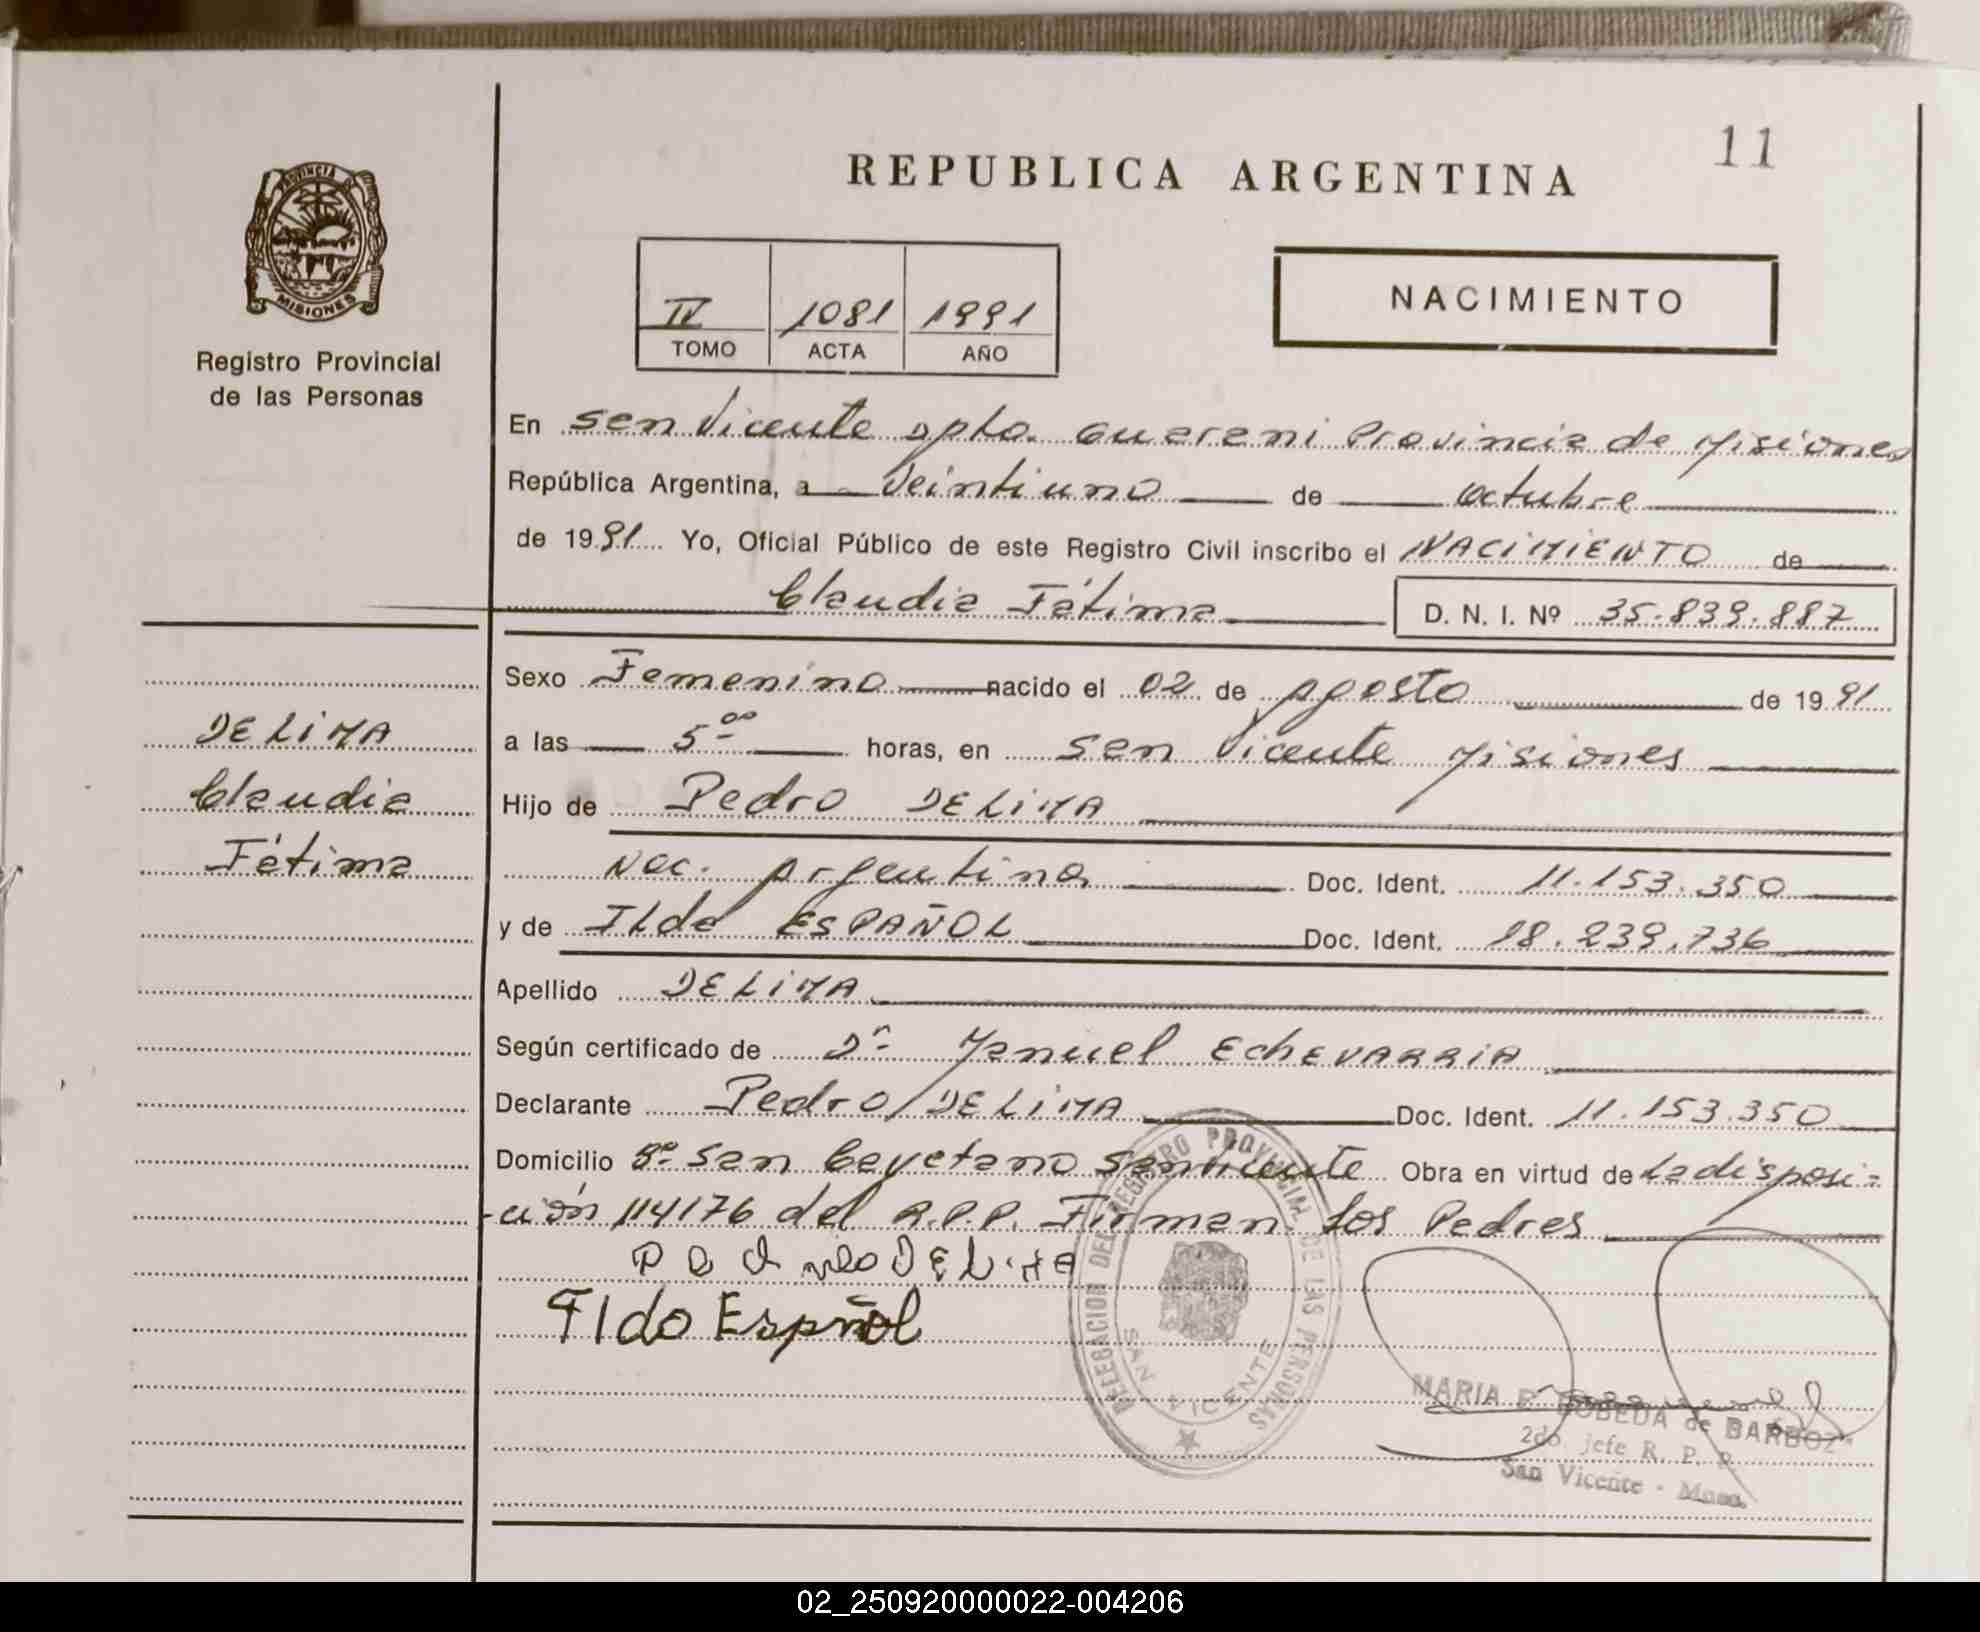 11
REPUBLICA ARGENTINA
PROVINCIA DE
MISIONES
Registro Provincial
de las Personas
IV 1081 1991
TOMO ACTA AÑO
NACIMIENTO
En San Vicente Dpto. Guarani Provincia de Misiones
República Argentina, a Veintiuno de octubre
de 1991 Yo, Oficial Público de este Registro Civil inscribo el NACIMIENTO de
Claudia Fátima D. N. I. Nº 35.839.887
DE LIMA
Claudia
Fátima
Sexo Femenino nacido el 02 de Agosto de 1991
a las 5 00 horas, en San Vicente Misiones
Hijo de Pedro DE LIMA
Nac. Argentina Doc. Ident. 11.153.350
y de ILda ESPAÑOL Doc. Ident. 18.239.736
Apellido DE LIMA
Según certificado de Dr Manuel EchEVARRIA
Declarante Pedro DE LIMA Doc. Ident. 11.153.350
Domicilio Bº San Cayetano San Vicente Obra en virtud de La disposi-
-ción 114176 del R.P.P. Firman Los Padres
DE LIMA
Ildo Español
DELEGACION DEL REGISTRO PROVINCIAL DE LAS PERSONAS
SAN VICENTE
MARIA E. BOBEDA de BARBOZA
2do. jefe R. P. P.
San Vicente - Mnes.
02_250920000022-004206